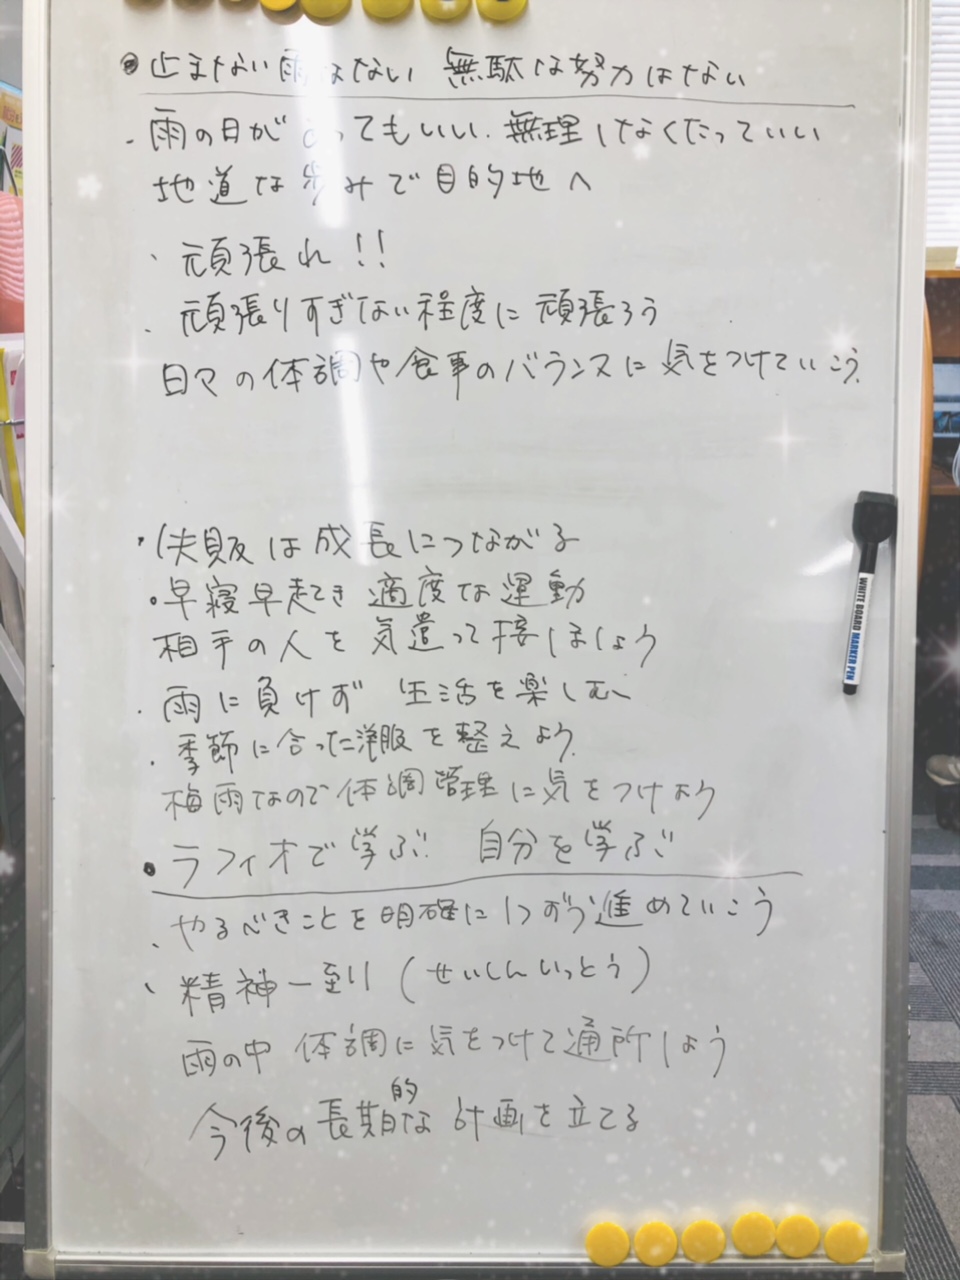 止まない雨はない 無駄な努力はない
雨の日があってもいい. 無理しなくたっていい
地道な歩みで目的地へ
頑張れ!!
頑張りすぎない程度に頑張ろう
日々の体調や食事のバランスに気をつけていこう.
失敗は成長につながる
早寝早起き 適度な運動
相手の人を気遣って接しましょう
雨に負けず 生活を楽しむ
季節に合った洋服を整えよう.
梅雨なので体調管理に気をつけよう
ラフィオで学ぶ 自分を学ぶ
やるべきことを明確に1つずつ進めていこう
精神一到 (せいしんいっとう)
雨の中 体調に気をつけて通所しよう
今後の長期的な計画を立てる
WHITE BOARD MARKER PEN